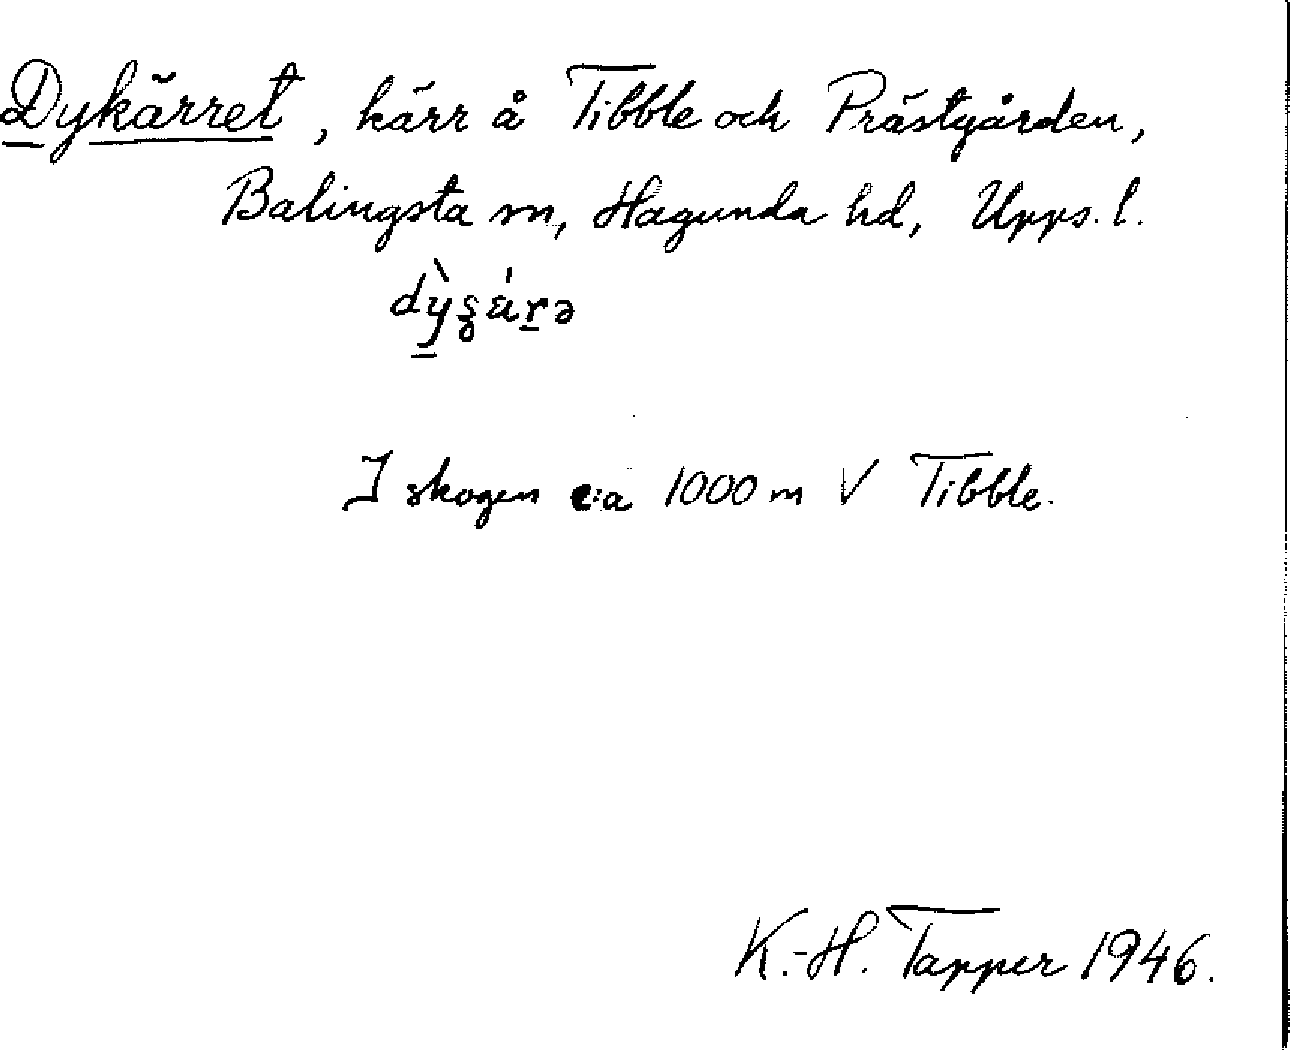 Dykärret, kärr å Tibble och Prästgården,
Balingsta sn, Hagunda hd, Upps. l.
I skogen c:a 1000 m V Tibble.
K.-H. Tapper 1946.